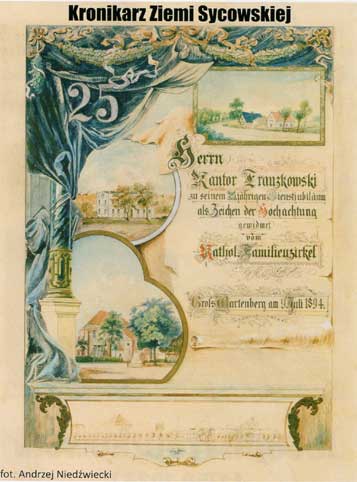 Kronikarz Ziemi Sycowskiej
25
Herrn
Kantor Franzkowski
zu seinem 25jährigen Dienstjubiläum
als Zeichen der Hochachtung
gewidmet
vom
Kathol. Familienzirkel
Groß-Wartenberg am 9. Juli 1894.
fot. Andrzej Niedźwiecki